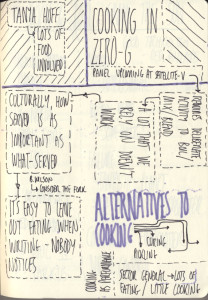 TANYA HUFF
↳ LOTS OF
FOOD
INVOLVED
COOKING IN
ZERO-G
PANEL UPCOMING AT SATELLITE-V
CULTURALLY, HOW
SERVED IS AS
IMPORTANT AS
WHAT-SERVED
B. WILSON
↳ CONSIDER THE FORK
LOT THAT WE
RELY ON DOESN'T
WORK
REQUIRES DELIBERATE
ACTIVITY TO
BOND
IT'S EASY TO LEAVE
OUT EATING WHEN
WRITING - NOBODY
NOTICES
ALTERNATIVES TO
COOKING
CURING
COOKING
AS PERFORMANCE
SECTOR GENERAL → LOTS OF
EATING / LITTLE COOKING